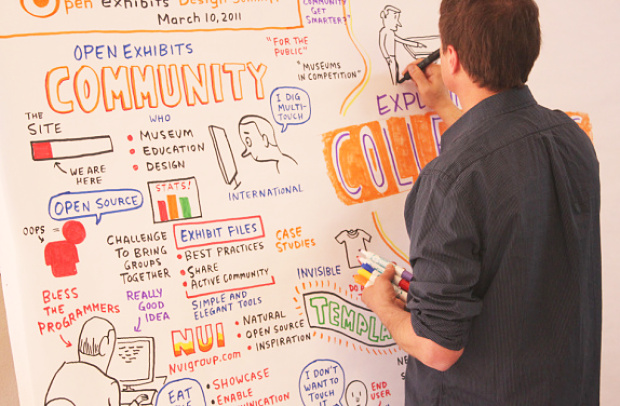 Open Exhibits Design
March 10, 2011
COMMUNITY
GET
SMARTER?"
"FOR THE
PUBLIC"
"MUSEUMS
IN COMPETITION"
OPEN EXHIBITS
COMMUNITY
THE
SITE
WE ARE
HERE
WHO
• MUSEUM
• EDUCATION
• DESIGN
I DIG
MULTI-
TOUCH
INTERNATIONAL
STATS!
OPEN SOURCE
OOPS =
CHALLENGE
TO BRING
GROUPS
TOGETHER
EXHIBIT FILES
• BEST PRACTICES
• SHARE
• ACTIVE COMMUNITY
CASE
STUDIES
SIMPLE AND
ELEGANT TOOLS
BLESS
THE
PROGRAMMERS
REALLY
GOOD
IDEA
NUI
NUIGROUP.COM
• NATURAL
• OPEN SOURCE
• INSPIRATION
EAT
• SHOWCASE
• ENABLE
EXP
COLL
INVISIBLE
TEMPLA
I DON'T
WANT TO
TOUCH
IT
END
USER